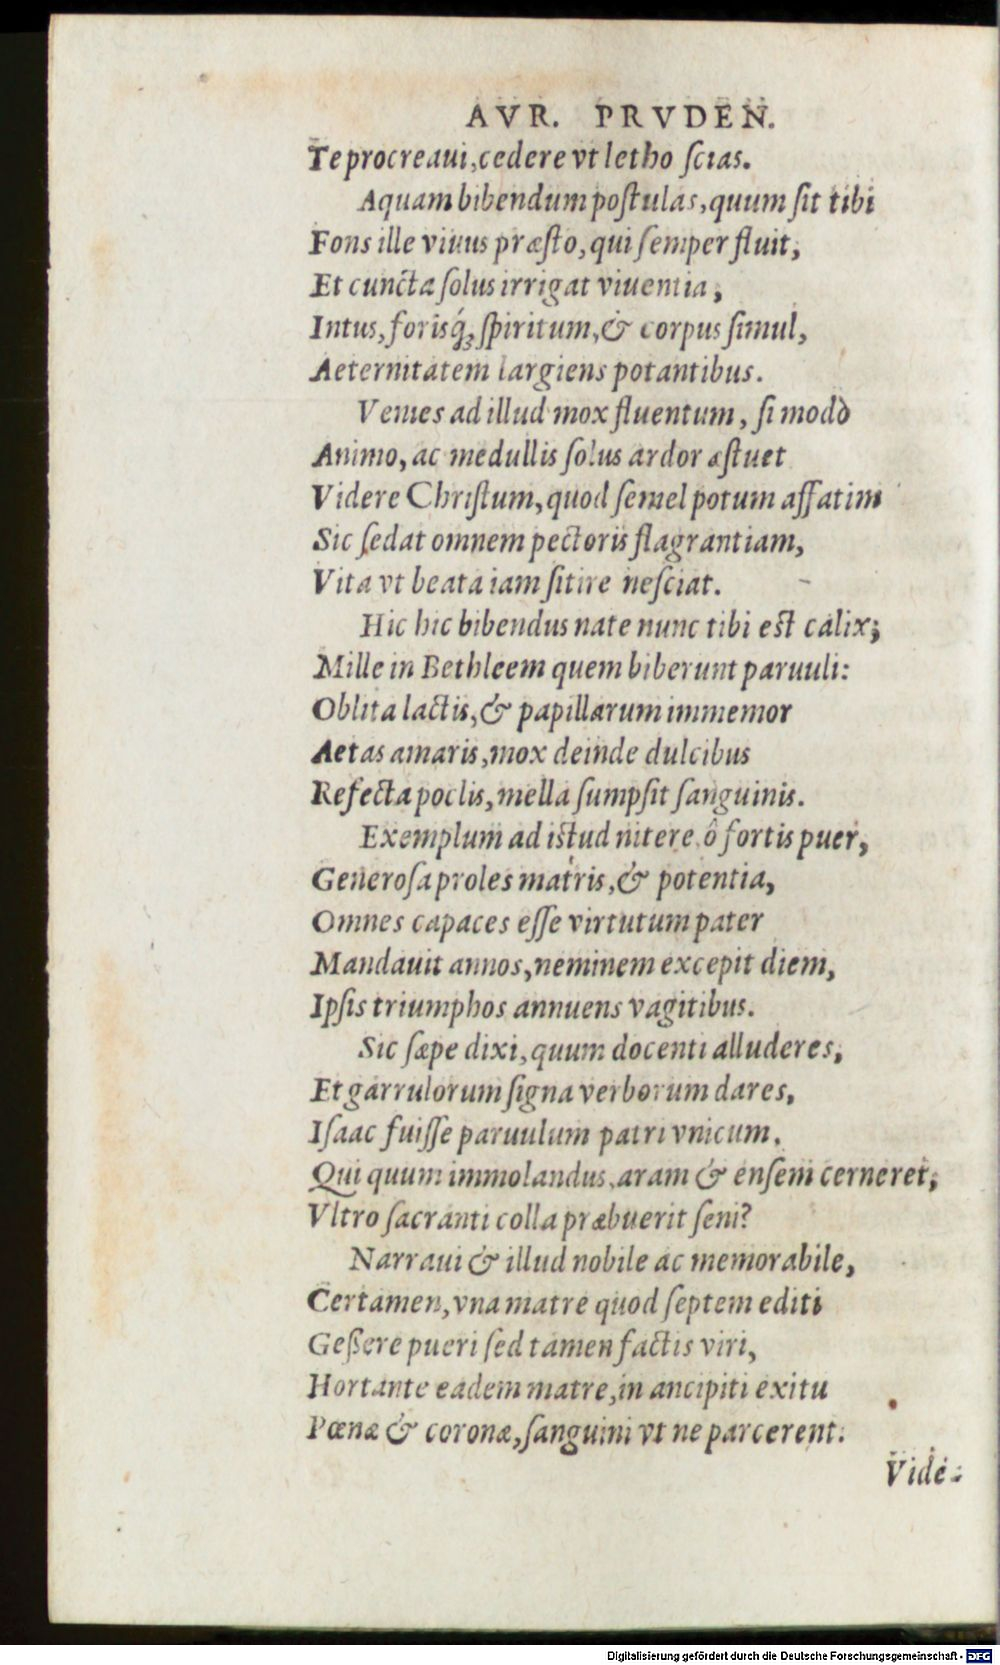 AVR. PRVDEN.
Te procreaui, cedere vt letho ſcias.
Aquam bibendum poſtulas, quum ſit tibi
Fons ille viuus præſto, qui ſemper fluit,
Et cuncta ſolus irrigat viuentia,
Intus, foriſq́; ſpiritum, & corpus ſimul,
Aeternitatem largiens potantibus.
Venies ad illud mox fluentum, ſi modò
Animo, ac medullis ſolus ardor æſtuet
Videre Chriſtum, quod ſemel potum affatim
Sic ſedat omnem pectoris flagrantiam,
Vita vt beata iam ſitire neſciat.
Hic hic bibendus nate nunc tibi eſt calix;
Mille in Bethleem quem biberunt paruuli:
Oblita lactis, & papillarum immemor
Aetas amaris, mox deinde dulcibus
Refecta poclis, mella ſumpſit ſanguinis.
Exemplum ad iſtud nitere ô fortis puer,
Generoſa proles matris, & potentia,
Omnes capaces eſſe virtutum pater
Mandauit annos, neminem excepit diem,
Ipſis triumphos annuens vagitibus.
Sic ſæpe dixi, quum docenti alluderes,
Et garrulorum ſigna verborum dares,
Iſaac fuiſſe paruulum patri vnicum.
Qui quum immolandus, aram & enſem cerneret,
Vltro ſacranti colla præbuerit ſeni?
Narraui & illud nobile ac memorabile,
Certamen, vna matre quod ſeptem editi
Geßere pueri ſed tamen factis viri,
Hortante eadem matre, in ancipiti exitu
Pœnæ & coronæ, ſanguini vt ne parcerent.
Vide-
Digitalisierung gefördert durch die Deutsche Forschungsgemeinschaft - DFG